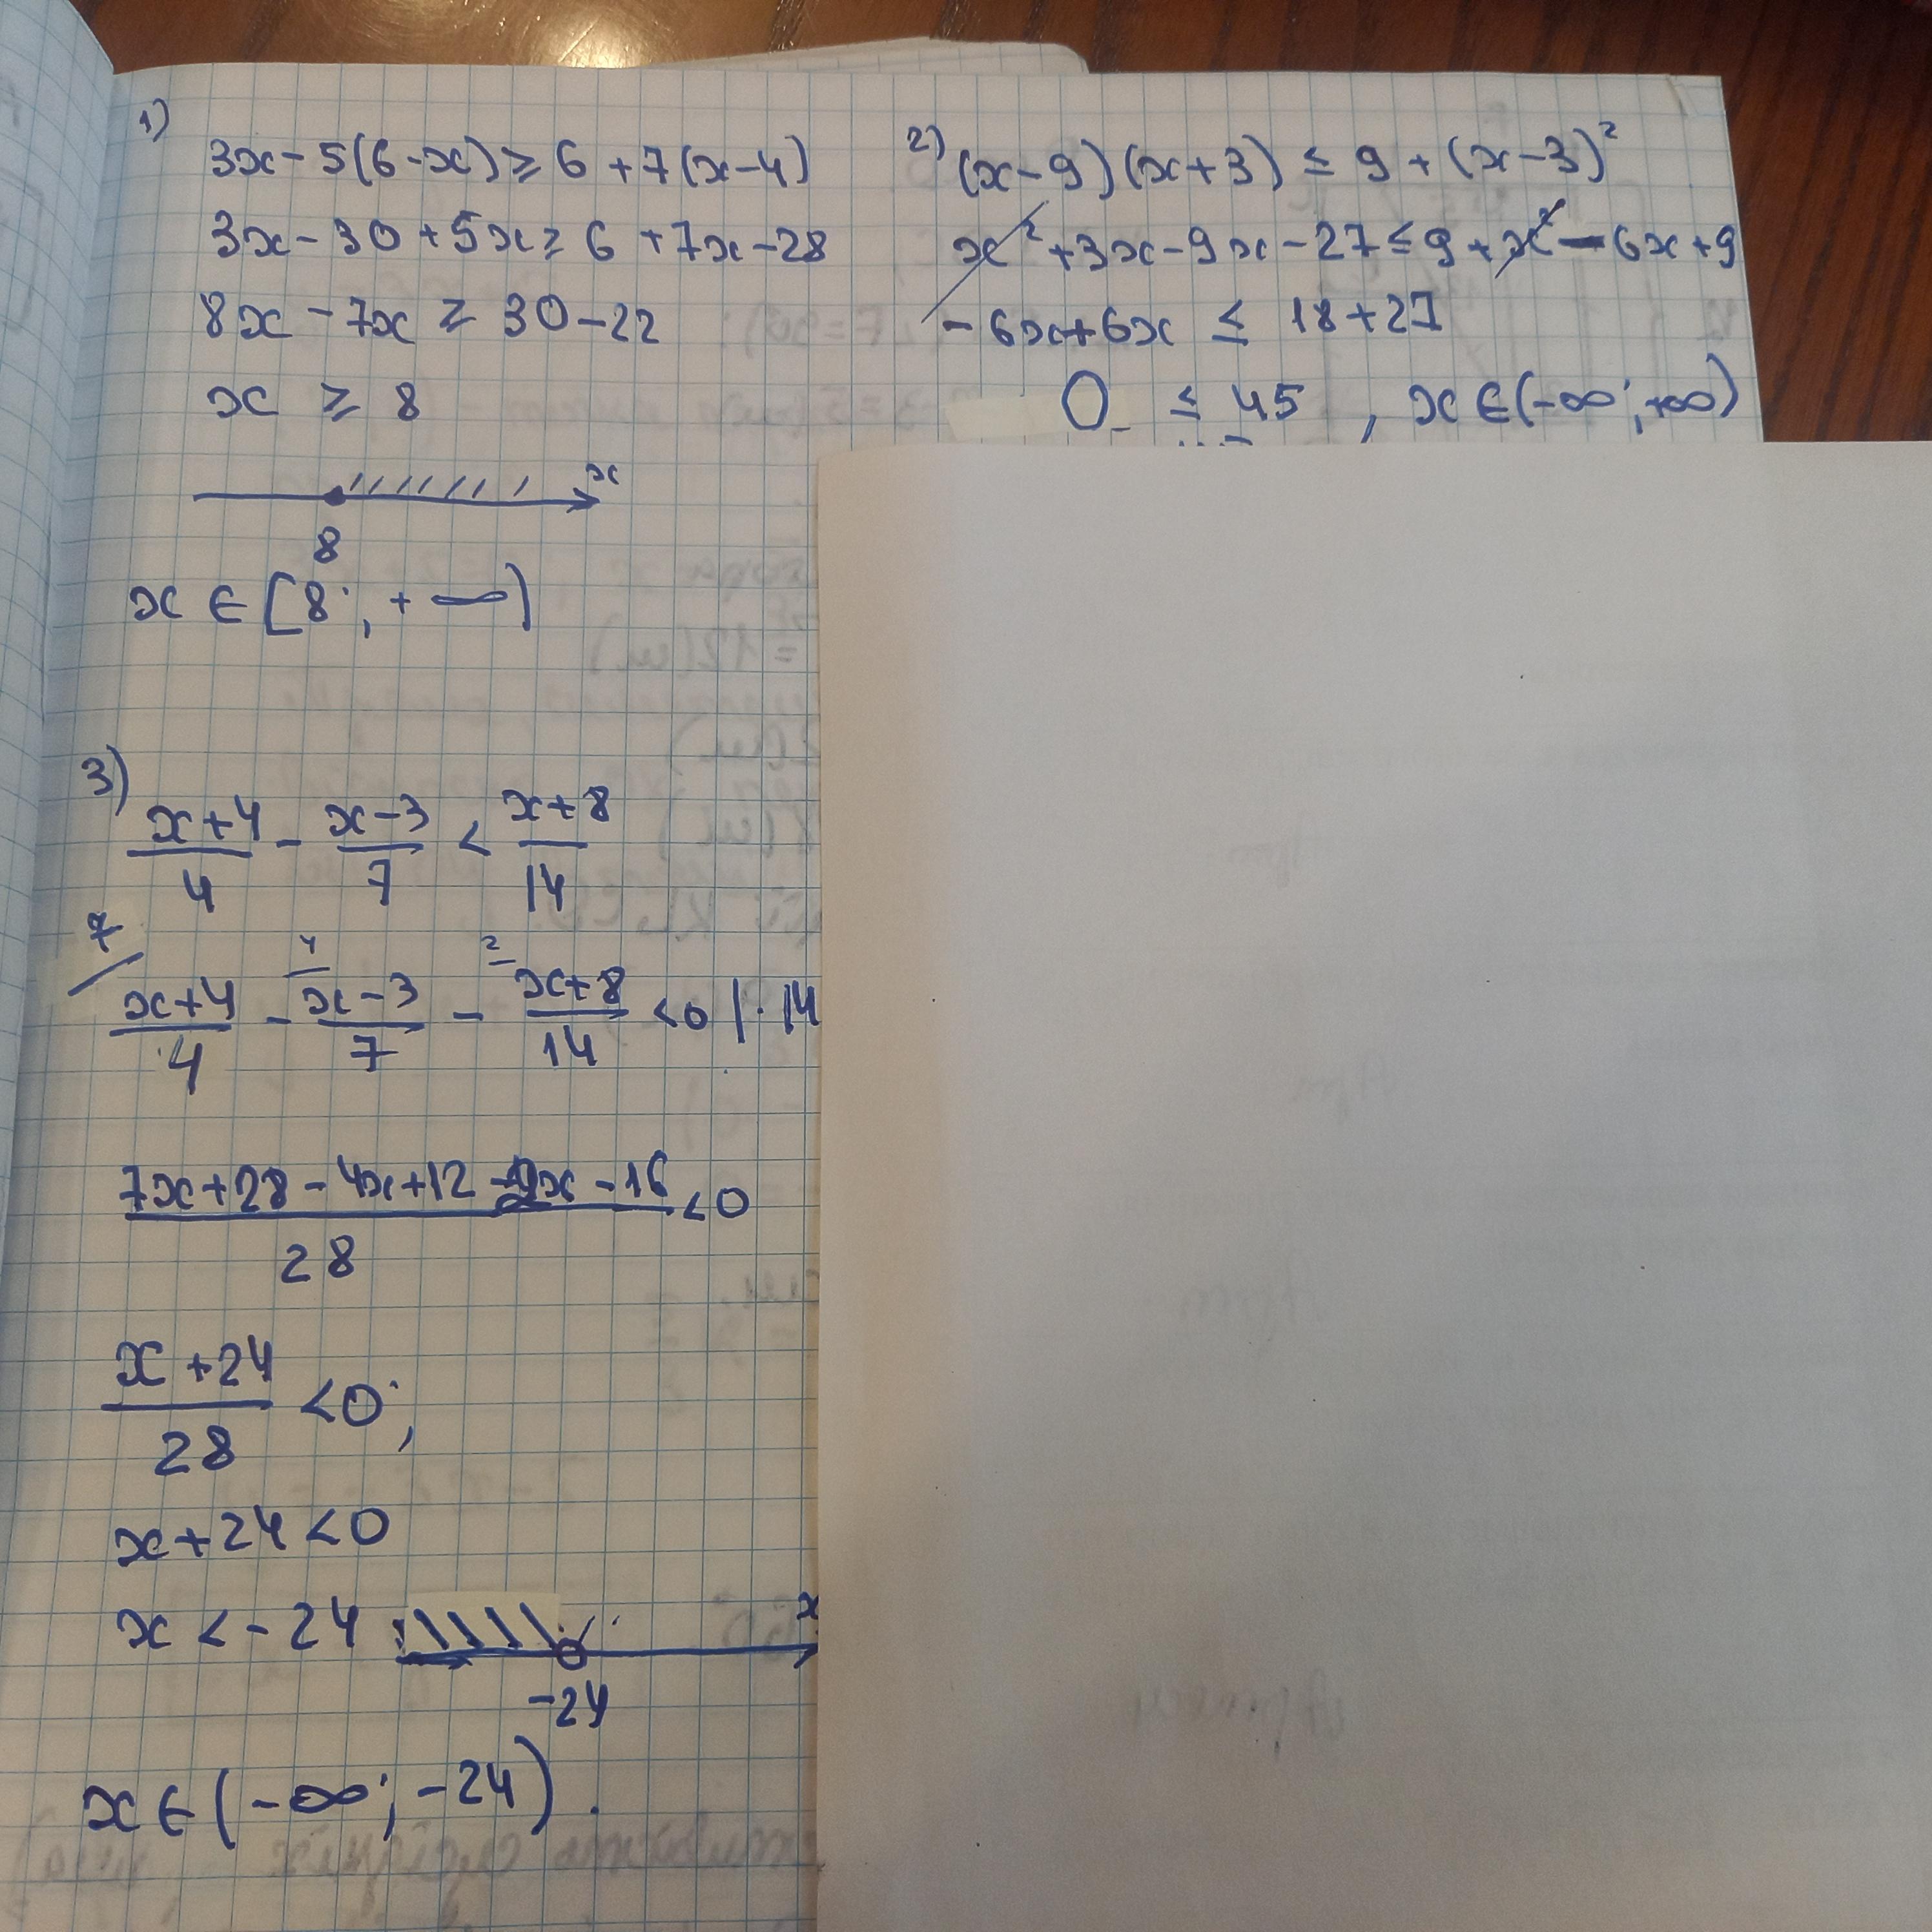 1)
3x - 5(6 - x) ≥ 6 + 7(x - 4)
3x - 30 + 5x ≥ 6 + 7x - 28
8x - 7x ≥ 30 - 22
x ≥ 8
x
8
x ∈ [8; +∞)
2) (x - 9)(x + 3) ≤ 9 + (x - 3)²
x² + 3x - 9x - 27 ≤ 9 + x² - 6x + 9
- 6x + 6x ≤ 18 + 27
0 ≤ 45, x ∈ (-∞; +∞)
3)
(x + 4)/4 - (x - 3)/7 < (x + 8)/14
7 4 2
(x + 4)/4 - (x - 3)/7 - (x + 8)/14 < 0 | · 14
(7x + 28 - 4x + 12 - 2x - 16)/28 < 0
(x + 24)/28 < 0;
x + 24 < 0
x < - 24
x
-24
x ∈ (-∞; -24).